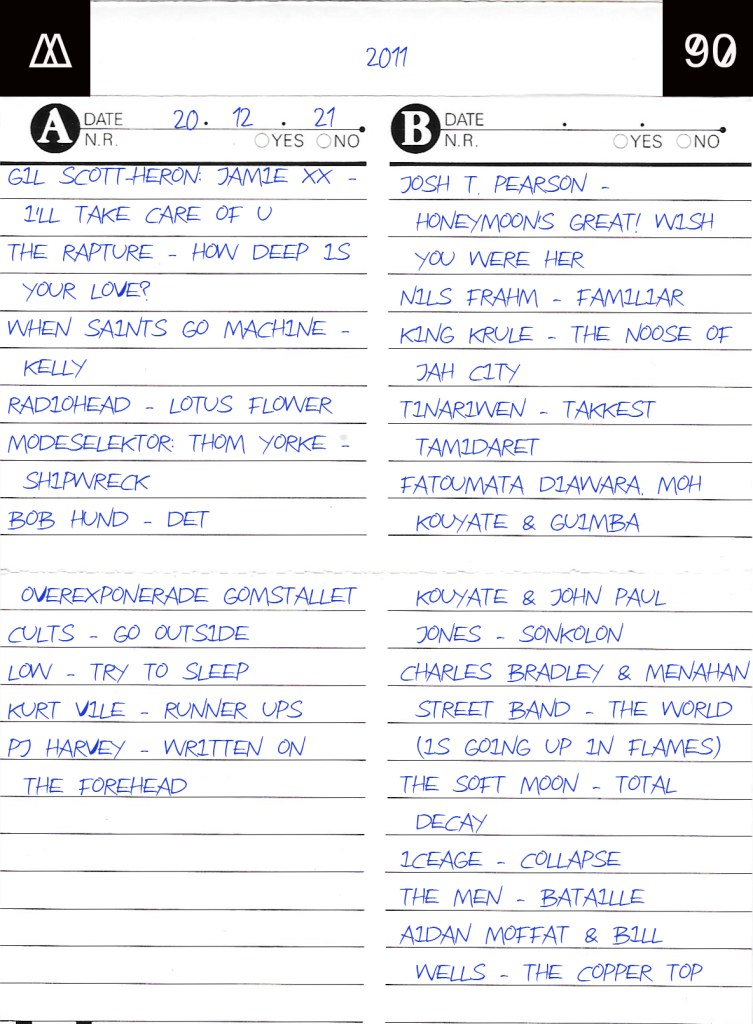 2011
90
A DATE 20. 12 . 21
N.R. YES NO
GIL SCOTT-HERON: JAMIE XX -
I'LL TAKE CARE OF U
THE RAPTURE - HOW DEEP IS
YOUR LOVE?
WHEN SAINTS GO MACHINE -
KELLY
RADIOHEAD - LOTUS FLOWER
MODESELEKTOR: THOM YORKE -
SHIPWRECK
BOB HUND - DET
OVEREXPONERADE GOMSTALLET
CULTS - GO OUTSIDE
LOW - TRY TO SLEEP
KURT VILE - RUNNER UPS
PJ HARVEY - WRITTEN ON
THE FOREHEAD
B DATE . .
N.R. YES NO
JOSH T. PEARSON -
HONEYMOON'S GREAT! WISH
YOU WERE HER
NILS FRAHM - FAMILIAR
KING KRULE - THE NOOSE OF
JAH CITY
TINARIWEN - TAKKEST
TAMIDARET
FATOUMATA DIAWARA, MOH
KOUYATE & GUIMBA
KOUYATE & JOHN PAUL
JONES - SONKOLON
CHARLES BRADLEY & MENAHAN
STREET BAND - THE WORLD
(IS GOING UP IN FLAMES)
THE SOFT MOON - TOTAL
DECAY
ICEAGE - COLLAPSE
THE MEN - BATAILLE
AIDAN MOFFAT & BILL
WELLS - THE COPPER TOP